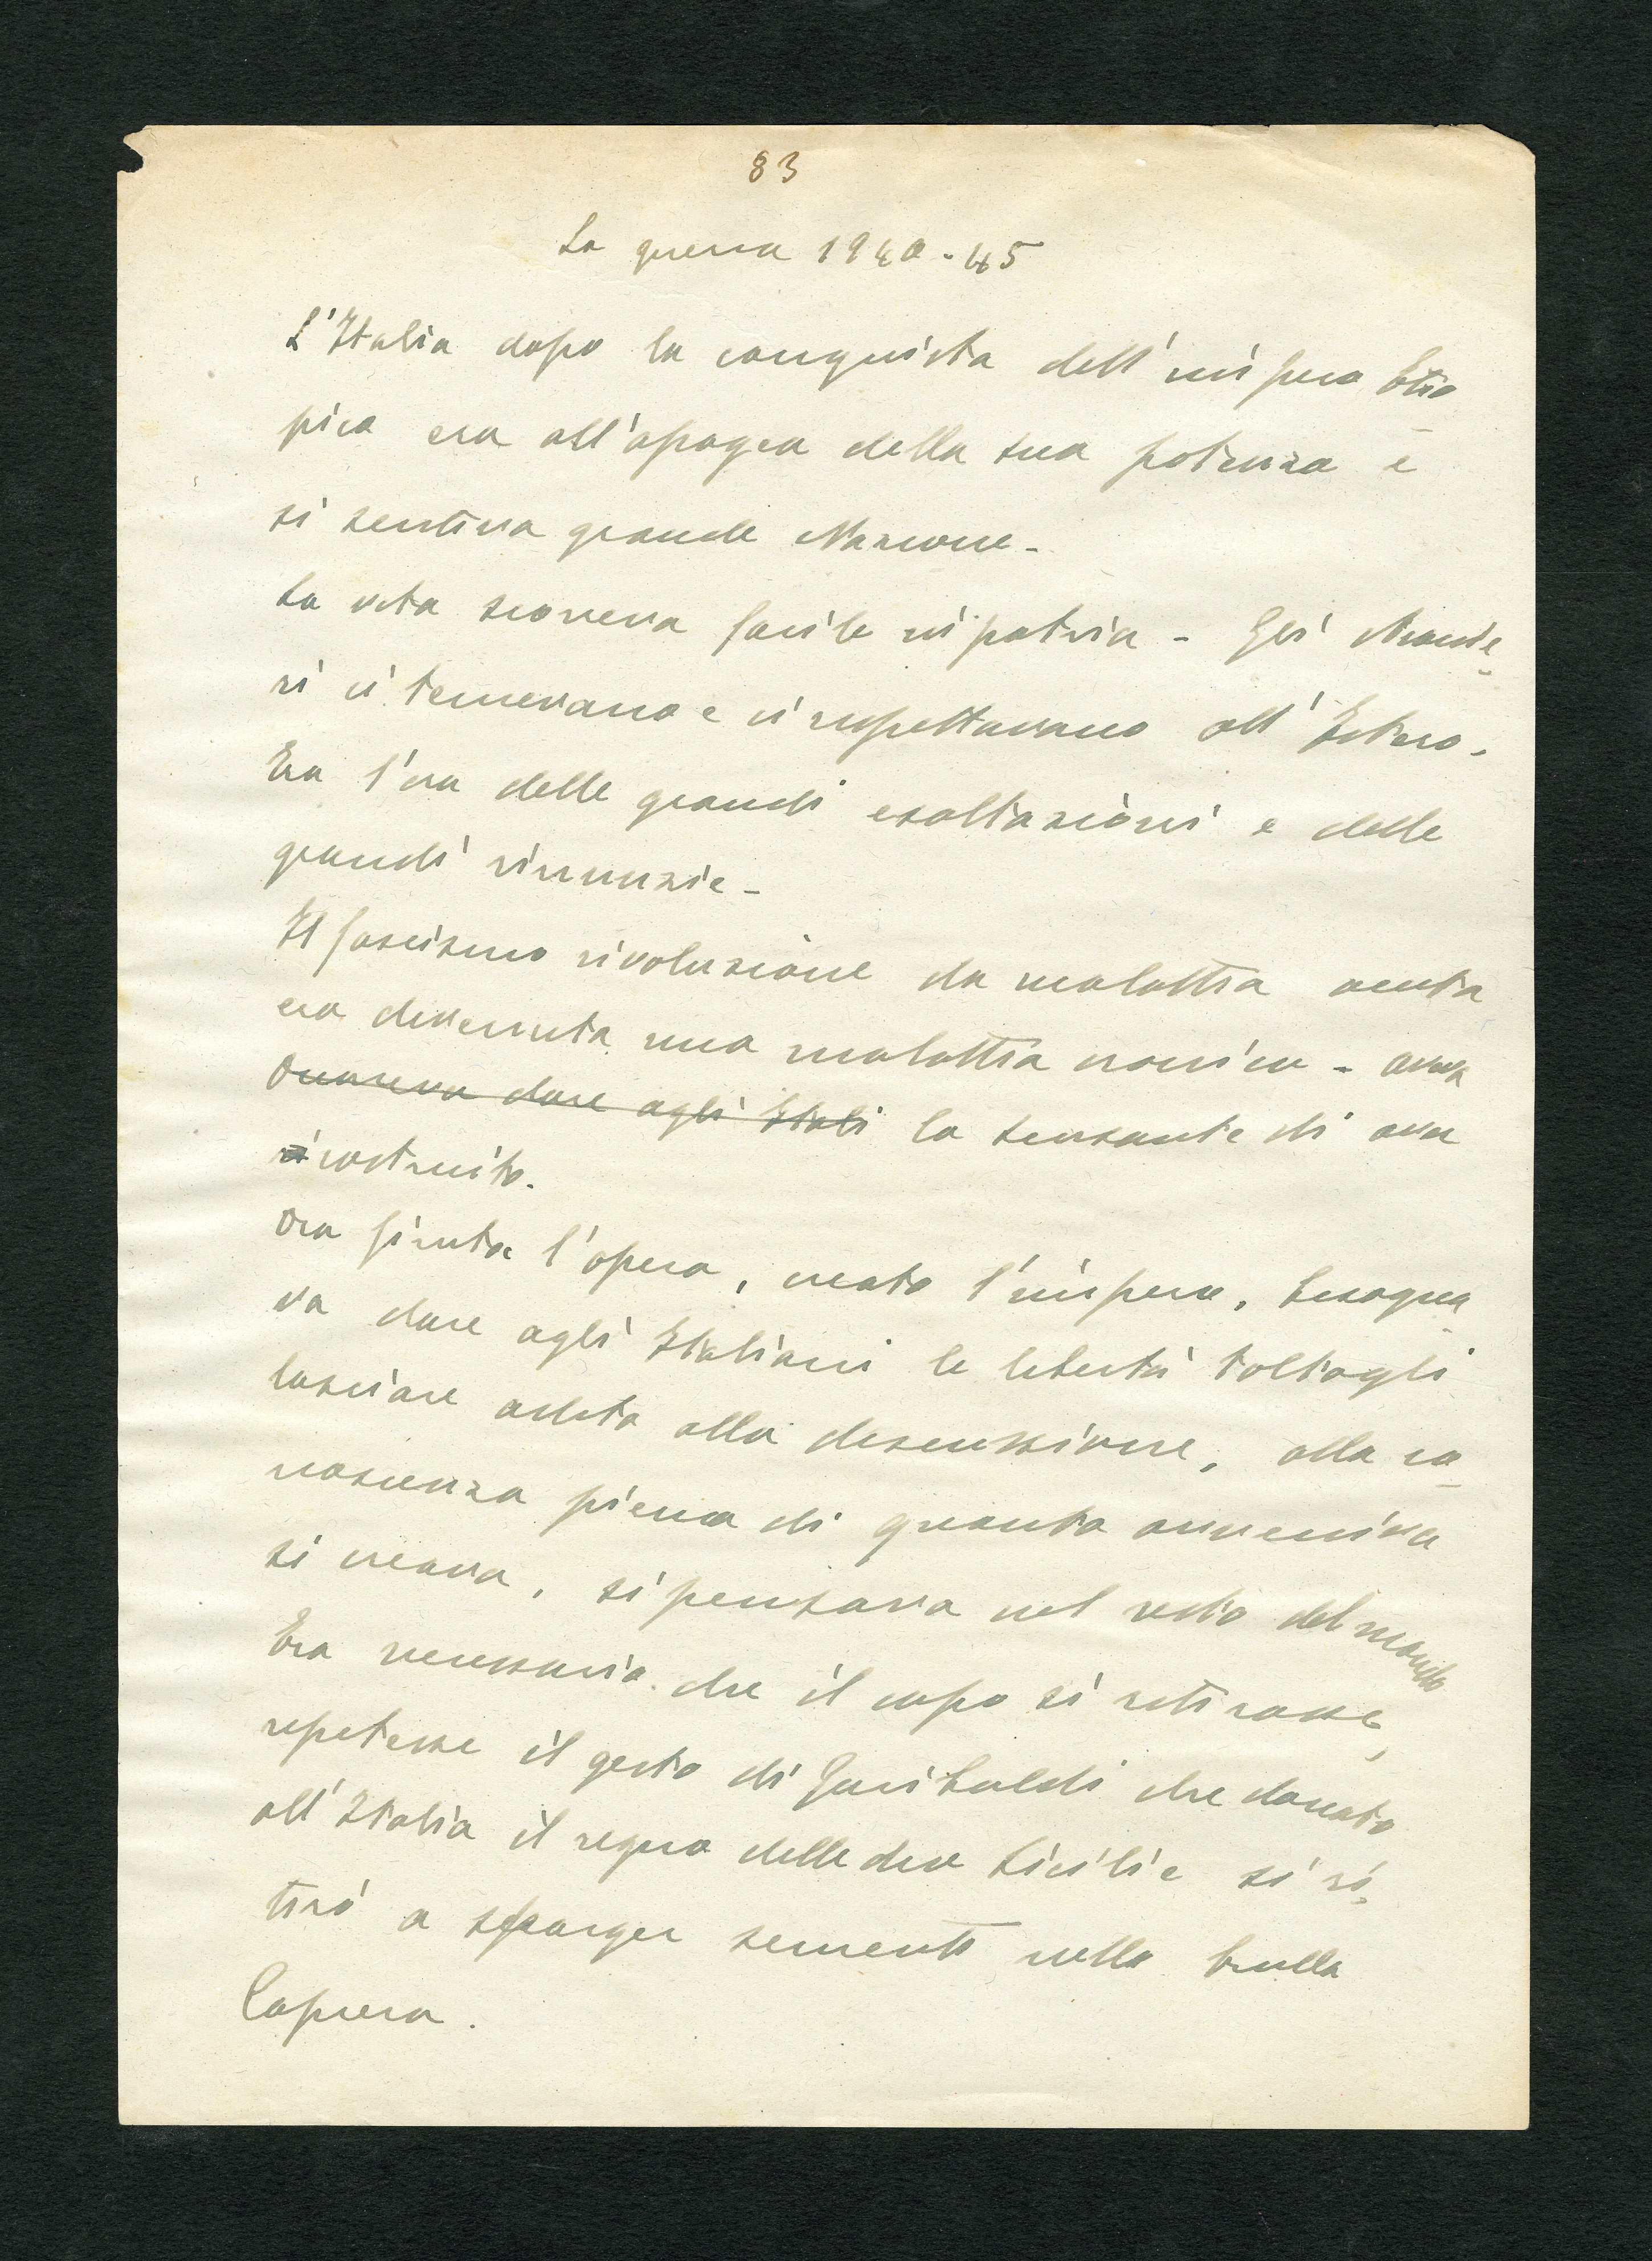 83
La guerra 1940-45
L'Italia dopo la conquista dell'impero Etio
pico era all'apogeo della sua potenza e
si sentiva grande Nazione -
La vita scorreva facile in patria - Gli stranie
ri ci temevano e ci rispettavano all'Estero.
Era l'era delle grandi esaltazioni e delle
grandi rinunzie -
Il fascismo rivoluzione da malattia acuta
era divenuta una malattia cronica - aveva
dare agli Itali la di aver
costruito.
Ora finita l'opera, creato l'impero, bisogna
va dare agli Italiani le libertà toltagli
lasciare adito alla discussione, alla co
noscenza piena di quanto avveniva
si creava, si pensava nel resto del mondo
Era necessario che il capo si ritirasse,
repetesse il gesto di Garibaldi che donato
all'Italia il regno delle due Sicilie si ri
tirò a sparger sementi nella brulla
Caprera.